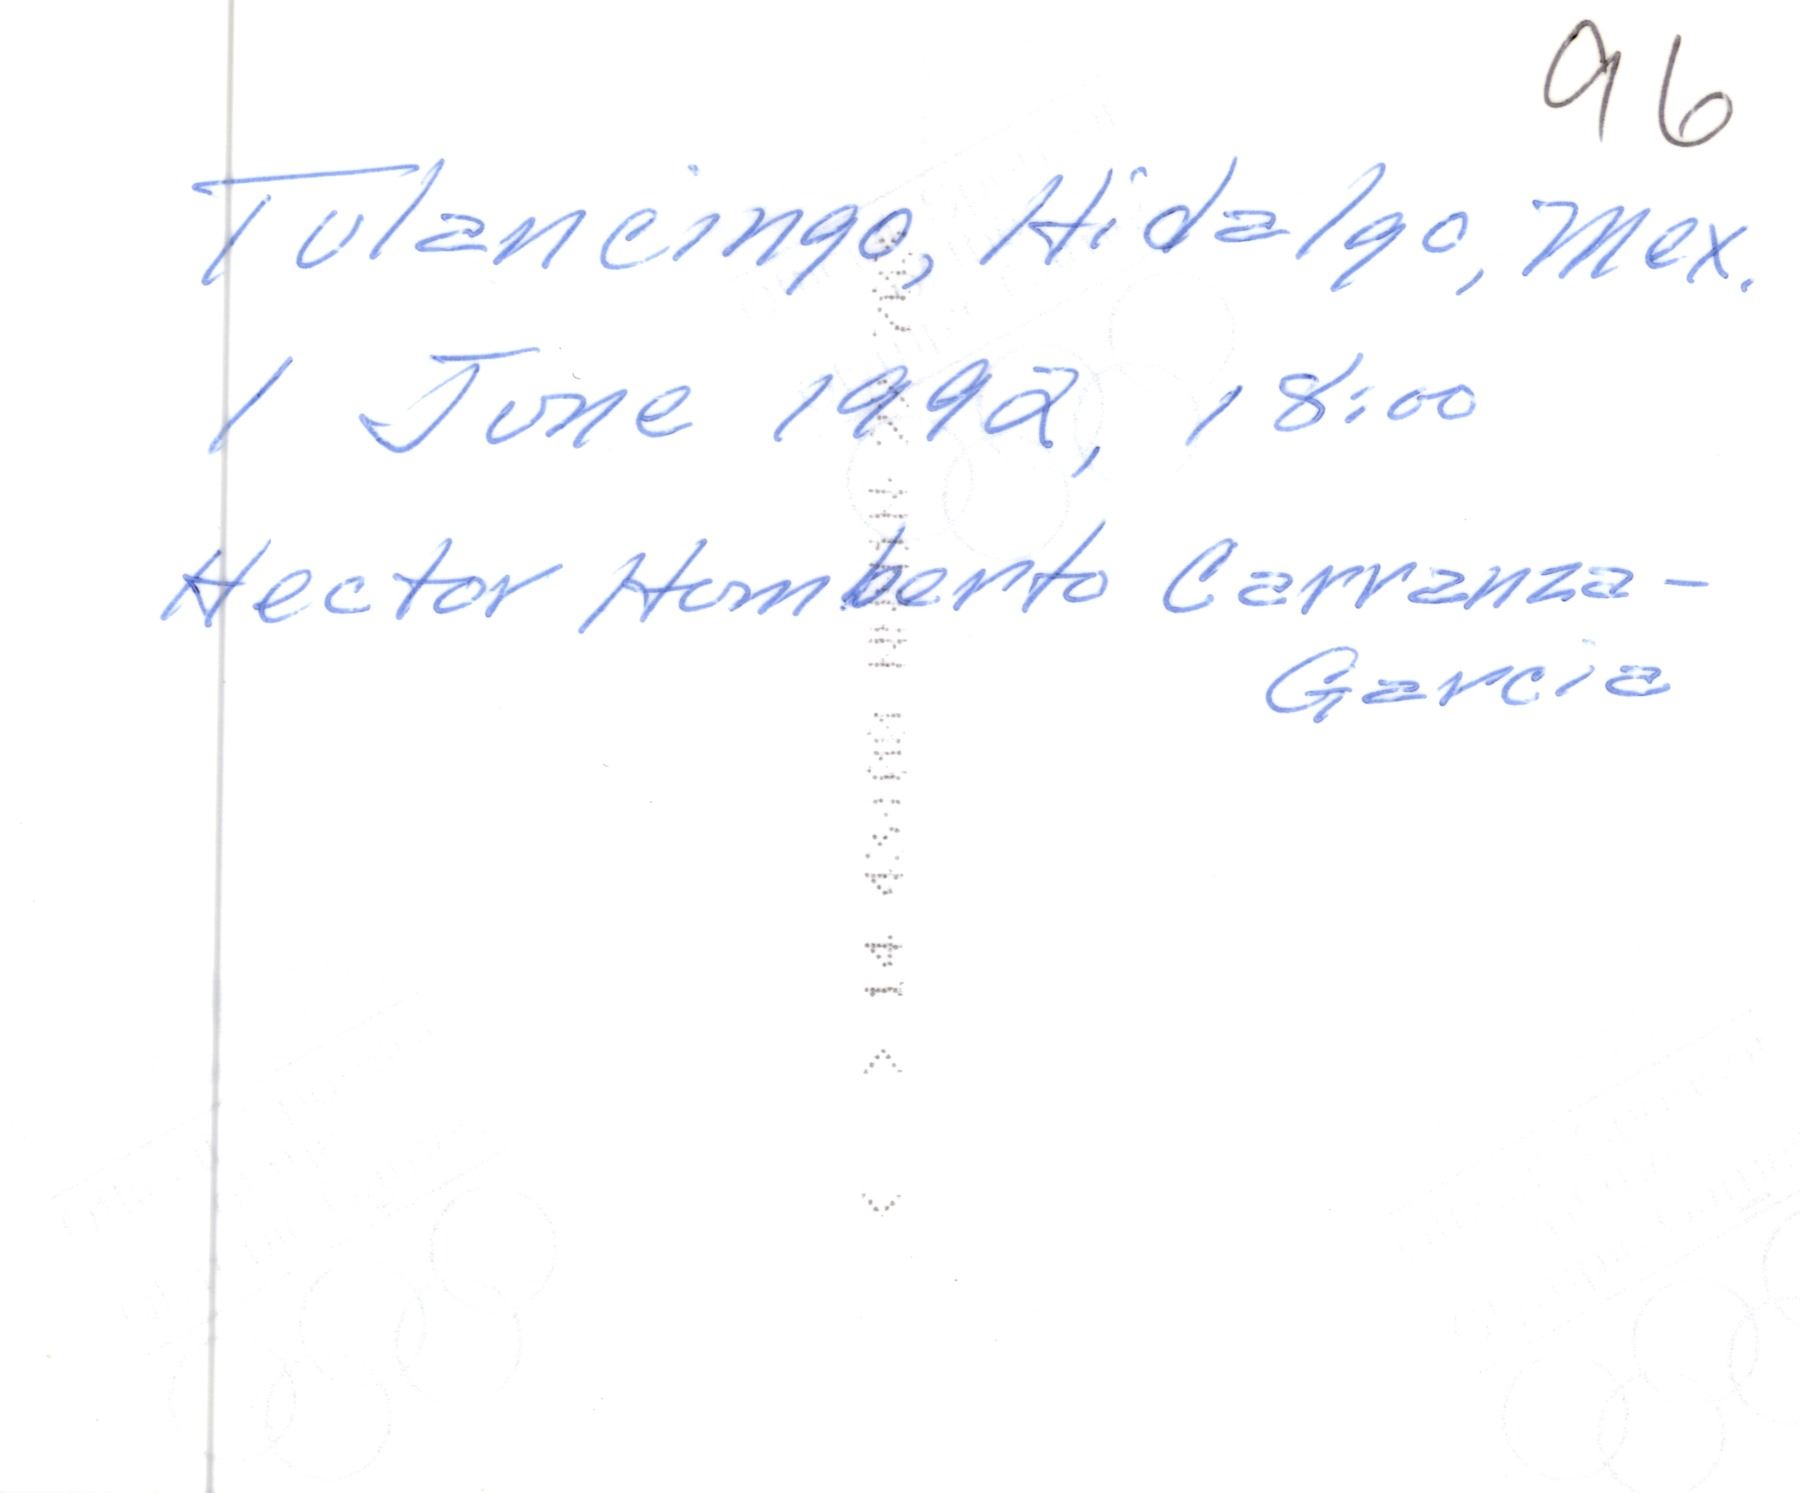 96
Tulancingo, Hidalgo, Mex.
1 June 1992, 18:00
Hector Homberto Carranza-
Garcia